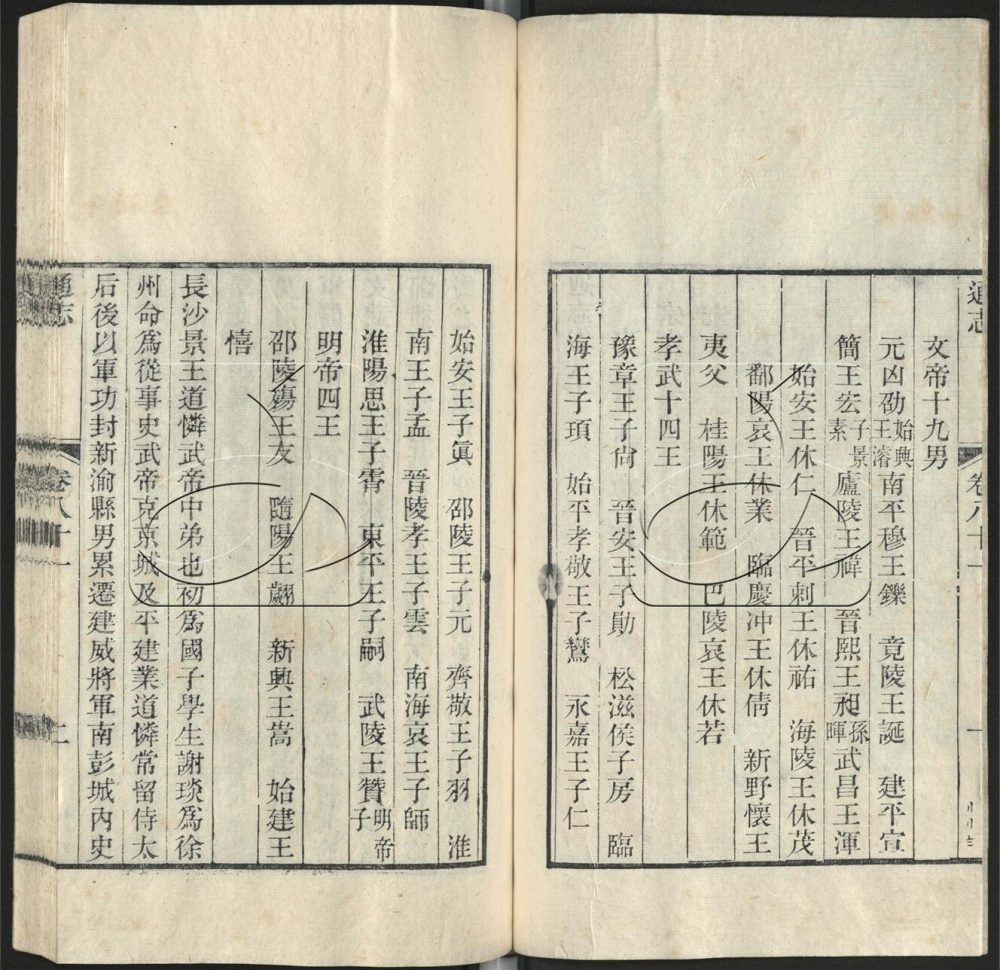 通志
卷八十一
一
文帝十九男
元凶劭始典王濬南平穆王鑠 竟陵王誕 建平宣
簡王宏子景素廬陵王禕 晉熙王昶孫暉武昌王渾
始安王休仁 晉平刺王休祐 海陵王休茂
鄱陽哀王休業 臨慶冲王休倩 新野懷王
夷父 桂陽王休範 巴陵哀王休若
孝武十四王
豫章王子尙 晉安王子勛 松滋侯子房 臨
海王子頊 始平孝敬王子鸞 永嘉王子仁
始安王子眞 邵陵王子元 齊敬王子羽 淮
南王子孟 晉陵孝王子雲 南海哀王子師
淮陽思王子霄 東平王子嗣 武陵王贊明帝子
明帝四王
邵陵殤王友 隨陽王翽 新興王嵩 始建王
禧
長沙景王道憐武帝中弟也初爲國子學生謝琰爲徐
州命爲從事史武帝克京城及平建業道憐常留侍太
后後以軍功封新渝縣男累遷建威將軍南彭城內史
通志
卷八十一
上